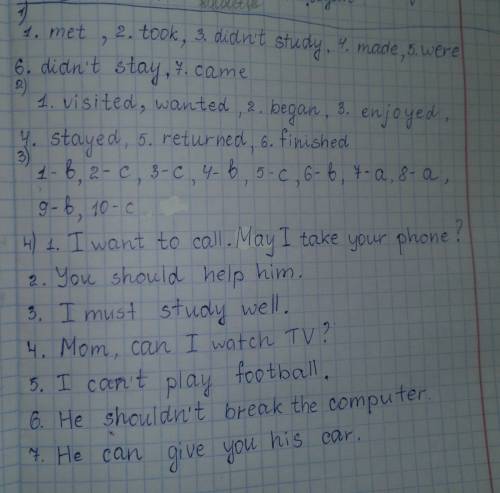 1)
1. met, 2. took, 3. didn't study, 4. made, 5. were
6. didn't stay, 7. came
2)
1. visited, wanted, 2. began, 3. enjoyed,
4. stayed, 5. returned, 6. finished
3)
1-b, 2-c, 3-c, 4-b, 5-c, 6-b, 7-a, 8-a,
9-b, 10-c
4) 1. I want to call. May I take your phone?
2. You should help him.
3. I must study well.
4. Mom, can I watch TV?
5. I can't play football.
6. He shouldn't break the computer.
7. He can give you his car.